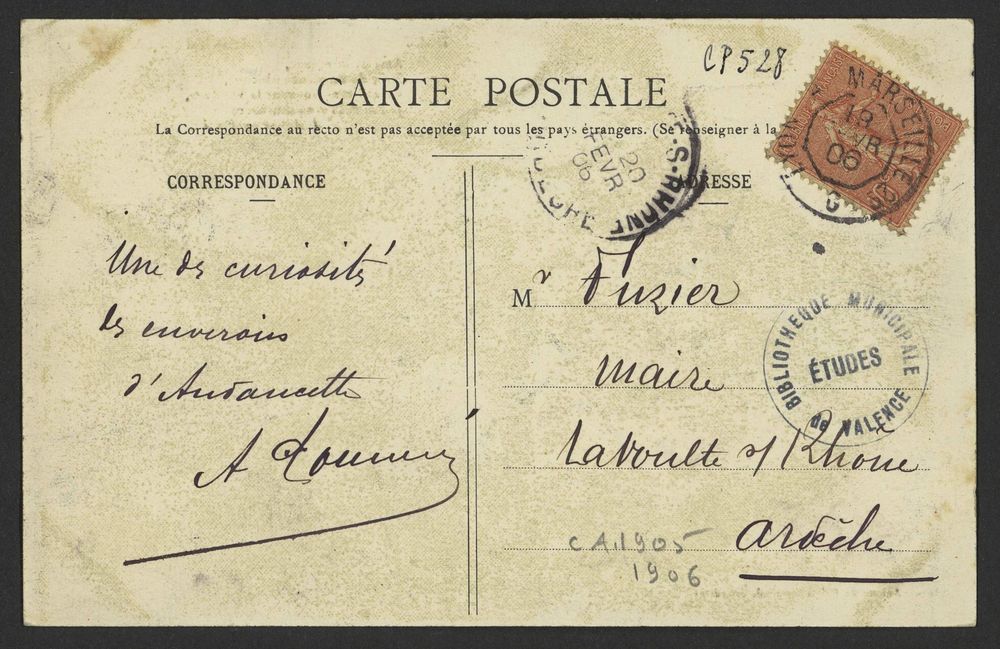 CP528
CARTE POSTALE
La Correspondance au recto n'est pas acceptée par tous les pays étrangers. (Se renseigner à la
CORRESPONDANCE
ADRESSE
MARSEILLE
LYON
18
FEVR
06
S-RHONE
20
FEVR
06
ARDECHE
Une des curiosités
des environs
d'Andancette
A
Mr Fuzier
maire
Lavoulte s/ Rhône
Ardèche
BIBLIOTHEQUE MUNICIPALE
ÉTUDES
de VALENCE
CA.1905
1906